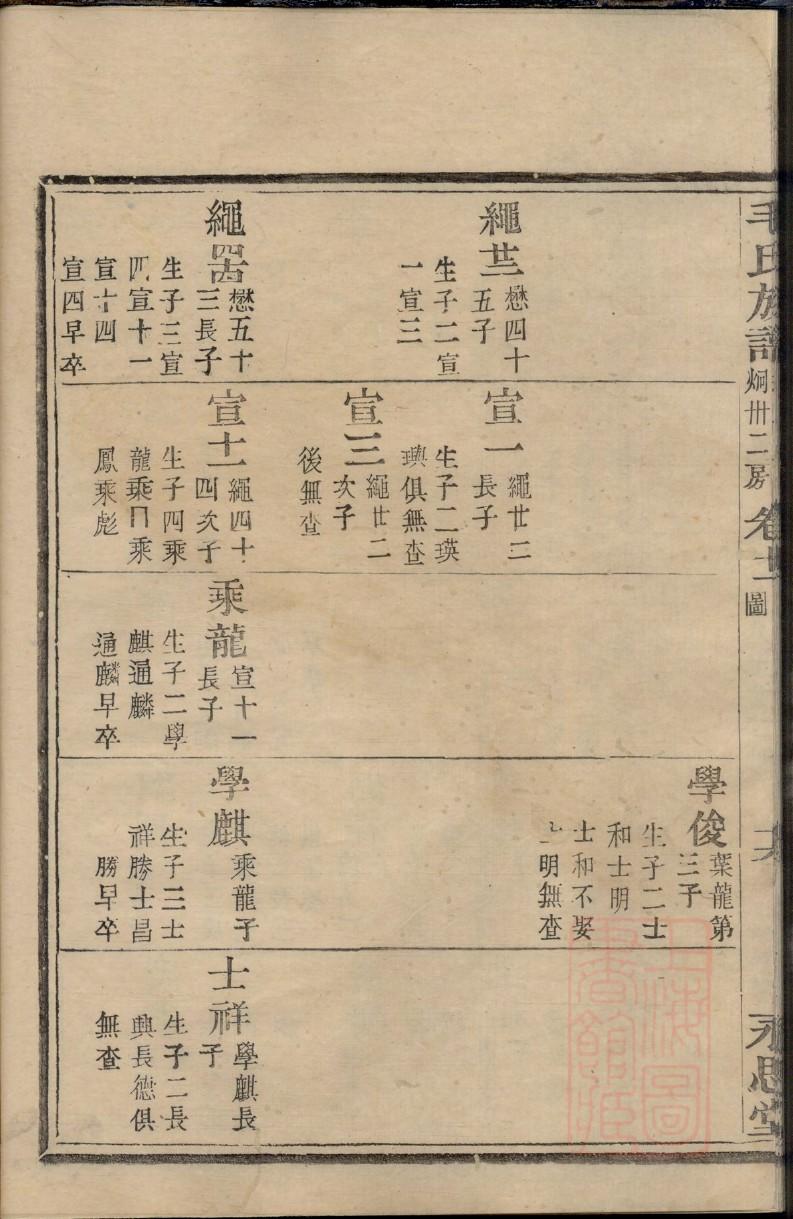 毛氏族譜
炯卅二房
卷十二
圖
永思堂
繩廿二
懋四十
五子
生子二宣
一宣三
繩四十四
懋五十
三長子
生子三宣
四宣十一
宣十四
宣四早卒
宣一
繩廿二
長子
生子二瑛
璵俱無查
宣三
繩廿二
次子
後無查
宣十一
繩四十
四次子
生子四乘
龍乘 乘
鳳乘彪
乘龍
宣十一
長子
生子二學
麒通麟
通麟早卒
學俊
葉龍第
三子
生子二士
和士明
士和不娶
士明無查
學麒
乘龍子
生子三士
祥勝士昌
勝早卒
士祥
學麒長
子
生子二長
興長德俱
無查
上海圖
書館藏